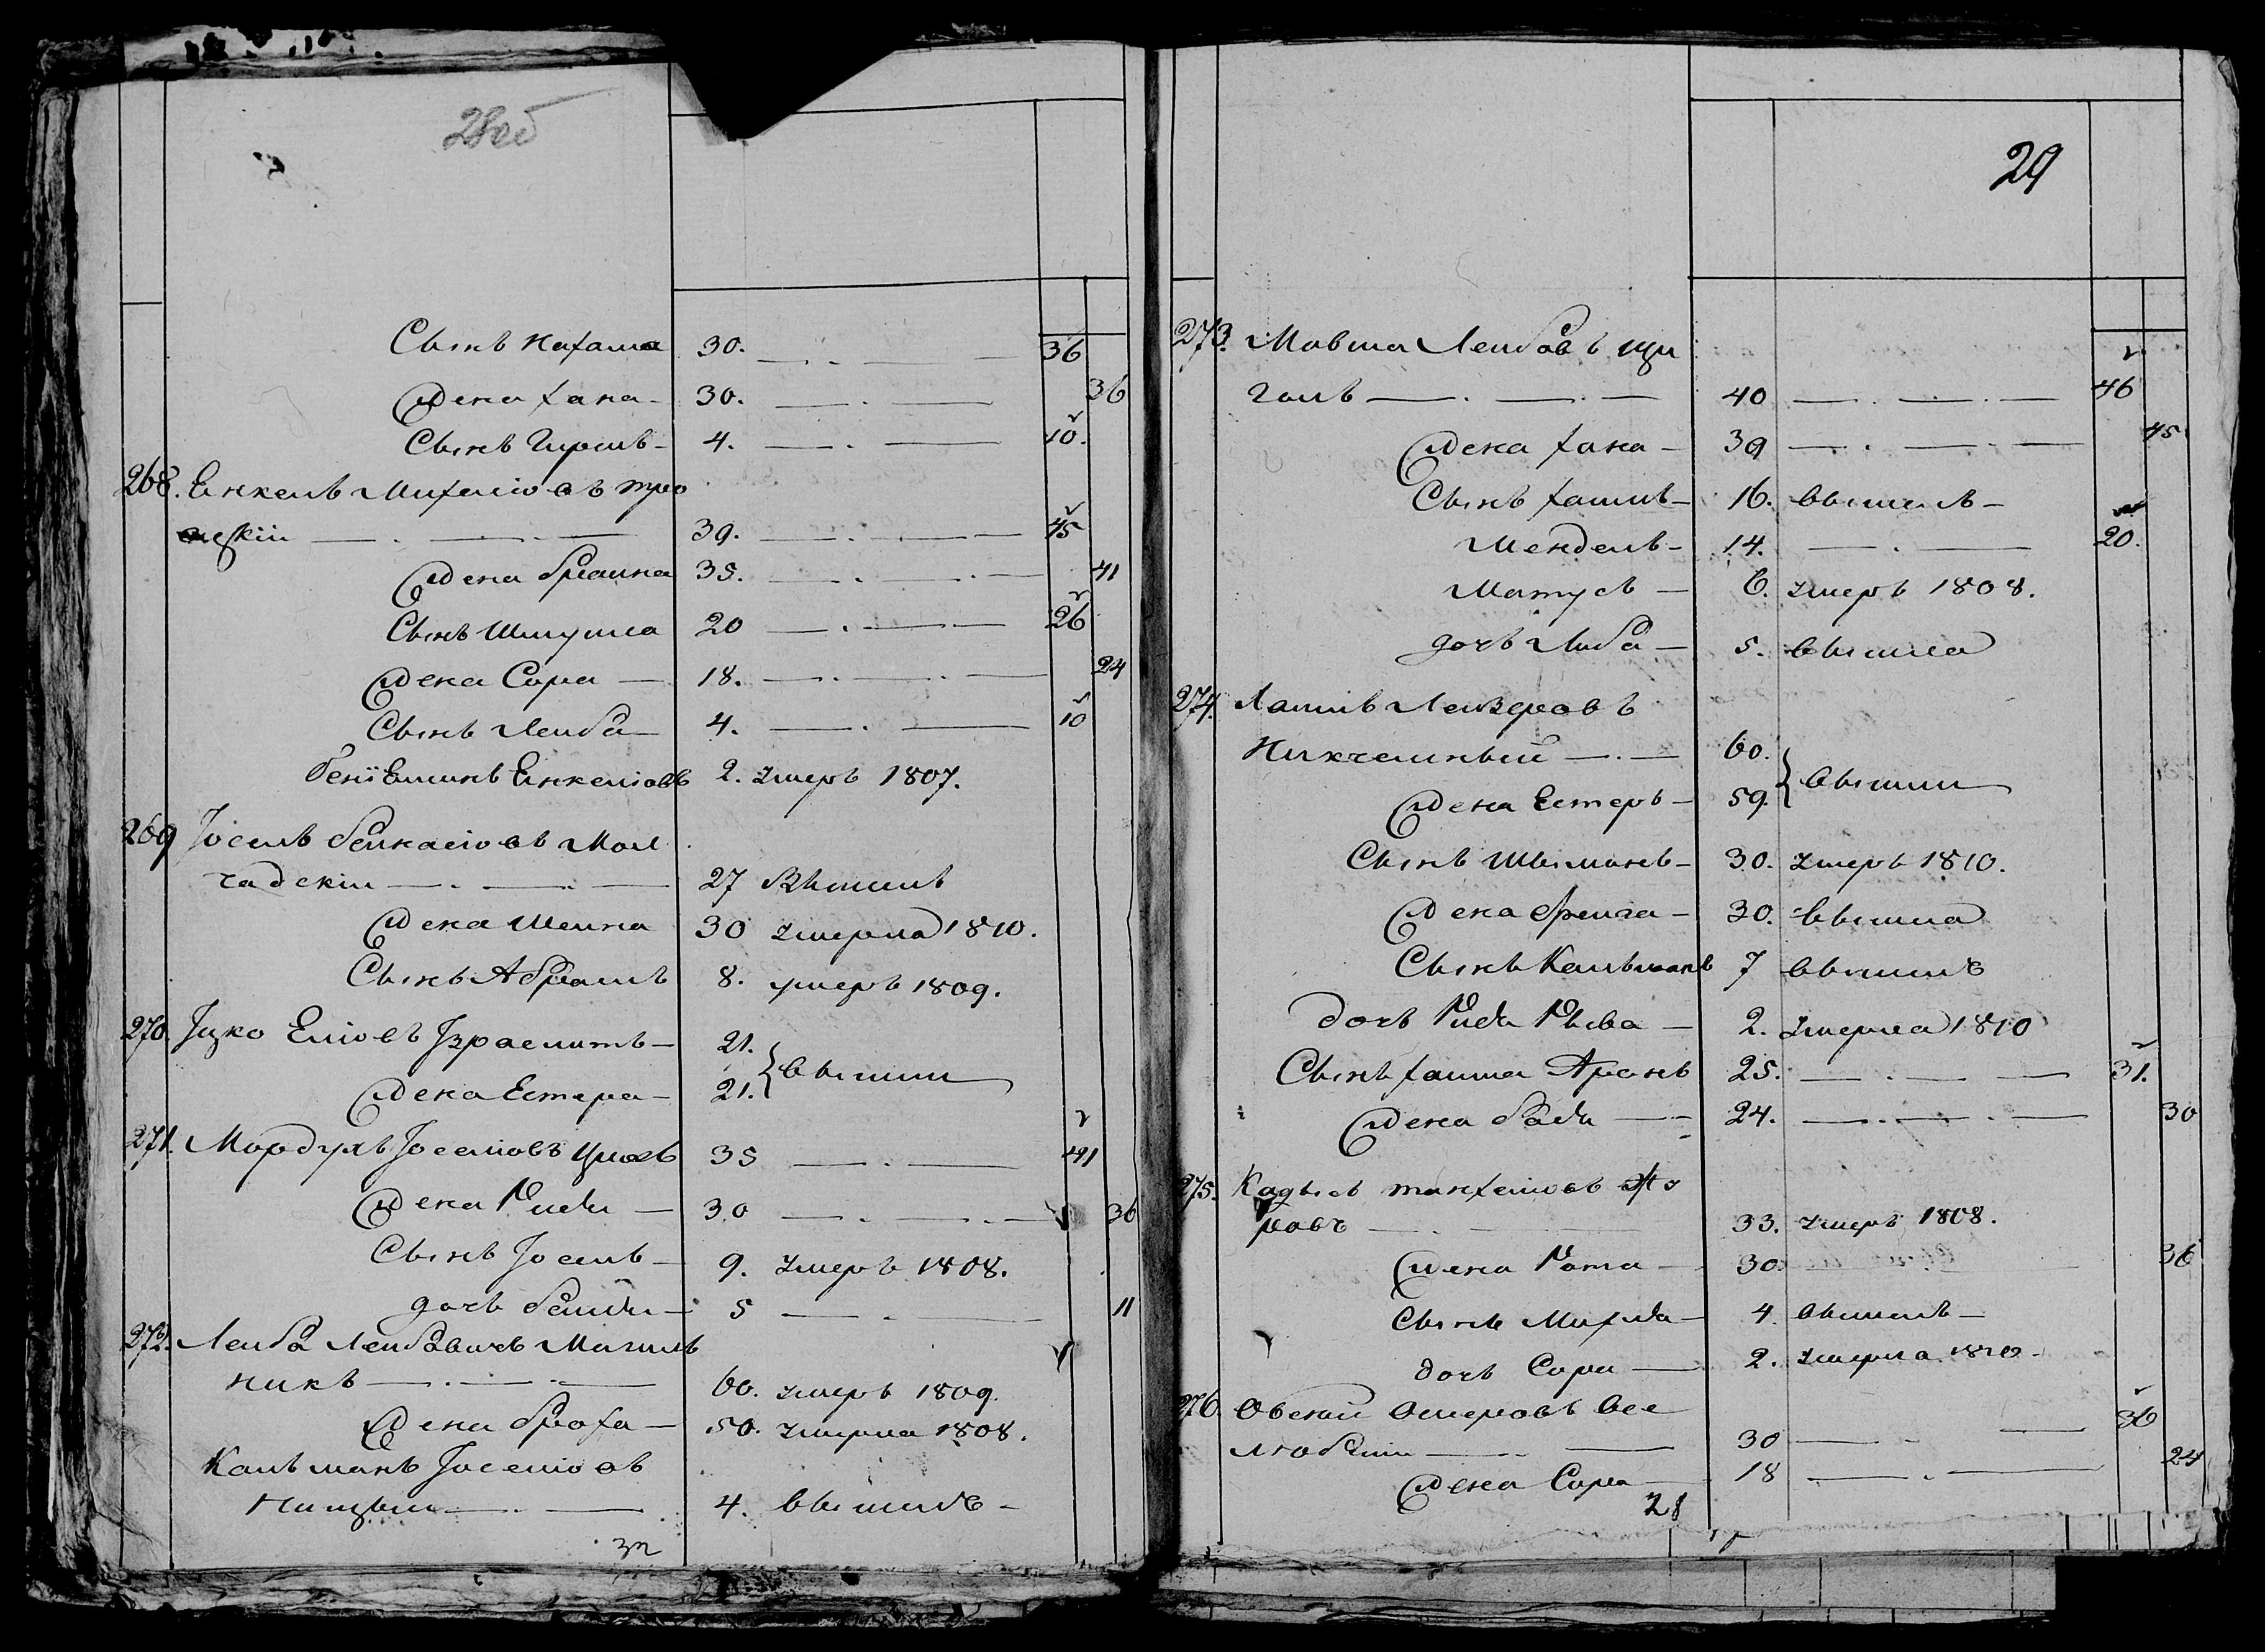 28об
Сынъ Нахама 30. 36
Жена Хана 30. 36
Сынъ Гиршъ 4. 10.
268. Енкель Михелiовъ тро
39. 45
Жена 35. 41
Сынъ Шмуила 20 26
Жена Сора 18. 24
Сынъ Лейба 4. 10
Бенiеминъ Енкелiовъ 2. умеръ 1807.
269 Iосель Бенкасiовъ Мол
чадскiи 27 Вышелъ
Жена Шейна 30 умерла 1810.
Сынъ Абрамъ 8. умеръ 1809.
270. Iцко Елiовъ Iзраелитъ 21.
Жена Естера 21. } вышли
271. Мордухъ Iоселiовъ 35 41
Жена Риси 30 36
Сынъ Iосель 9. умеръ 1808.
дочь 5 11
272. Лейба Лейбавичъ Магиль
никъ 60. умеръ 1809.
Жена Броха 50. умерла 1808.
Кальманъ Iоселiовъ
4. вышелъ
29
273. Мовша Лейбовъ щи
голь 40 46
Жена Хана 39 45
Сынъ Хаимъ 16. вышелъ
Мендель 14. 20.
Матусъ 6. умеръ 1808.
дочь Либа 5. вышла
274. Хаимъ Лейзеровъ
Никчемный 60.
Жена Естеръ 59. } вышли
Сынъ Шиманъ 30. умеръ 1810.
Жена Фрейга 30. вышла
Сынъ Кальманъ 7 вышелъ
дочь Риси Рыва 2. умерла 1810
Сынъ Хаима Аронъ 25. 31.
Жена 24. 30
275. Кадысъ
ровъ 33. умеръ 1808.
Жена 30. 36
Сынъ 4. вышелъ
дочь Сора 2. умерла 1810
276. Овсей Ошеровъ Все
любскiи 30 36
Жена Сора 18 24
21